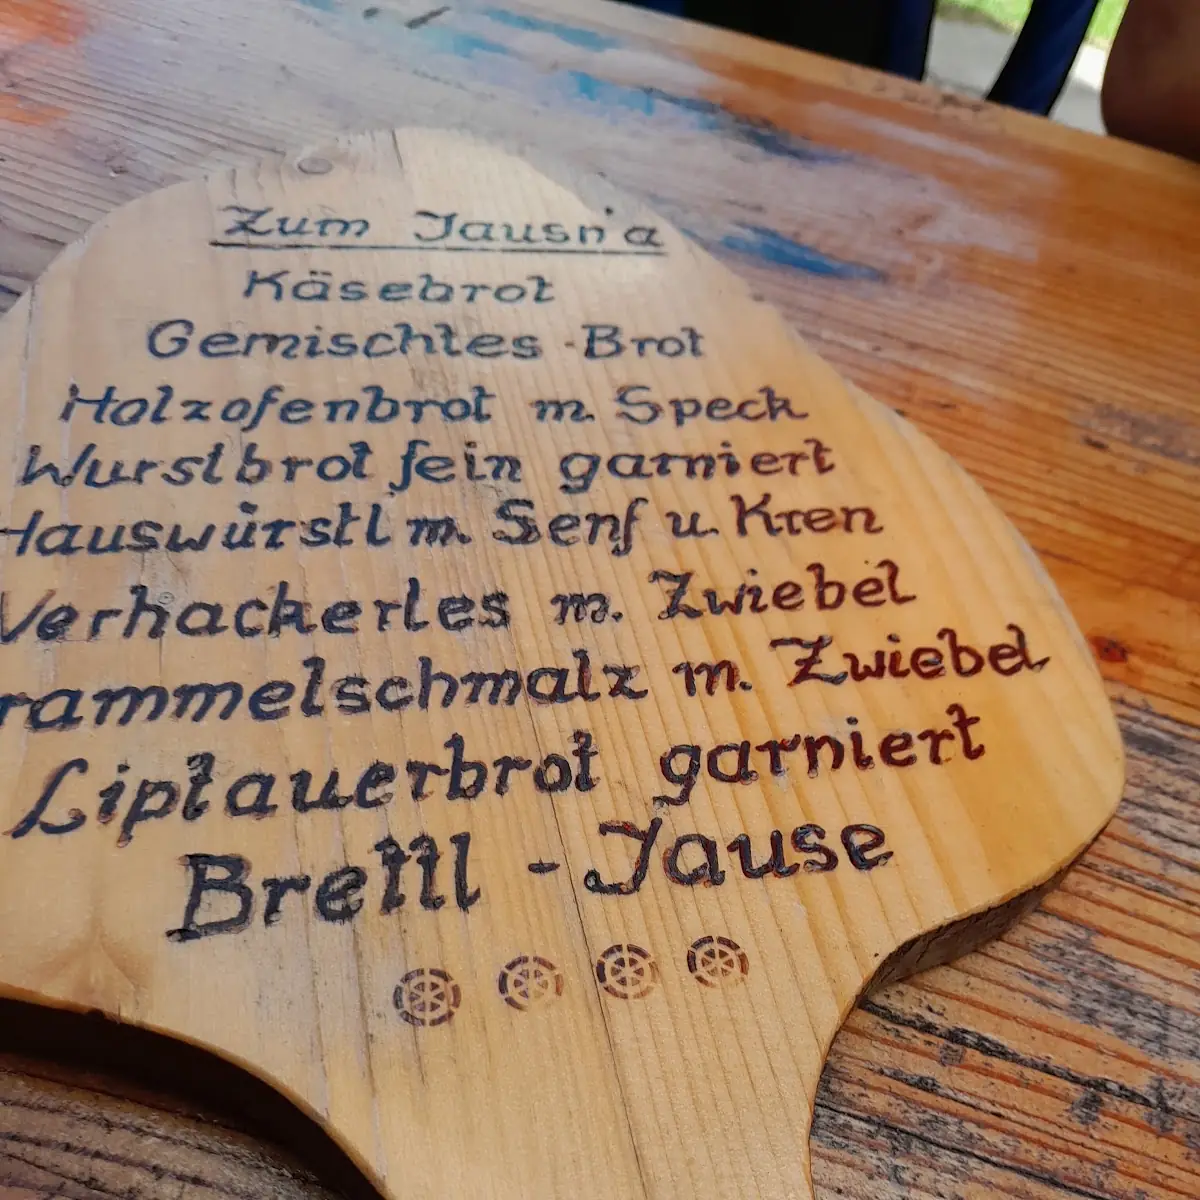 Zum Jausn'a
Käsebrot
Gemischtes-Brot
Holzofenbrot m. Speck
Wurstbrot fein garniert
Hauswürstl m. Senf u. Kren
Verhackertes m. Zwiebel
rammelschmalz m. Zwiebel
Liptauerbrot garniert
Brettl-Jause